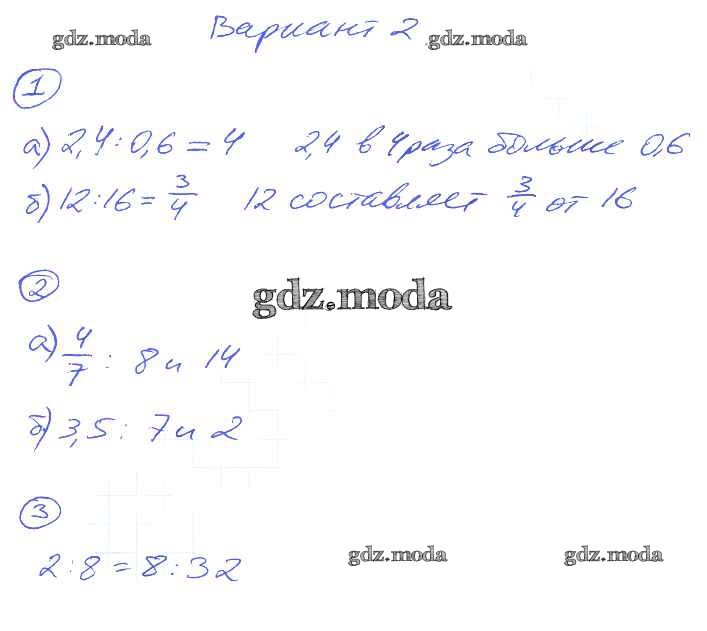 Вариант 2
gdz.moda gdz.moda
1
а) 2,4 : 0,6 = 4 2,4 в 4 раза больше 0,6
б) 12 : 16 = 3/4 12 составляет 3/4 от 16
2
gdz.moda
а) 4/7 : 8 и 14
б) 3,5 : 7 и 2
3
2 : 8 = 8 : 32
gdz.moda gdz.moda